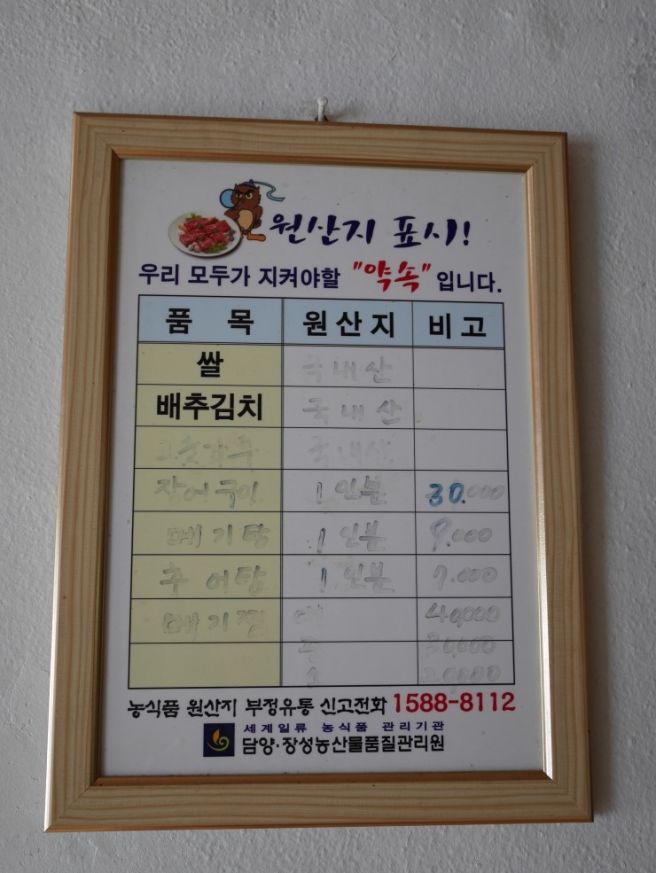 원산지 표시!
우리 모두가 지켜야할 "약속" 입니다.
품 목 원산지 비고
쌀 국내산
배추김치 국내산
국내산
장어구이 1인분 30.000
메기탕 1인분 9.000
추어탕 1인분 7.000
메기찜 대 40,000
중 30,000
소 20,000
농식품 원산지 부정유통 신고전화 1588-8112
세계일류 농식품 관리기관
담양·장성농산물품질관리원